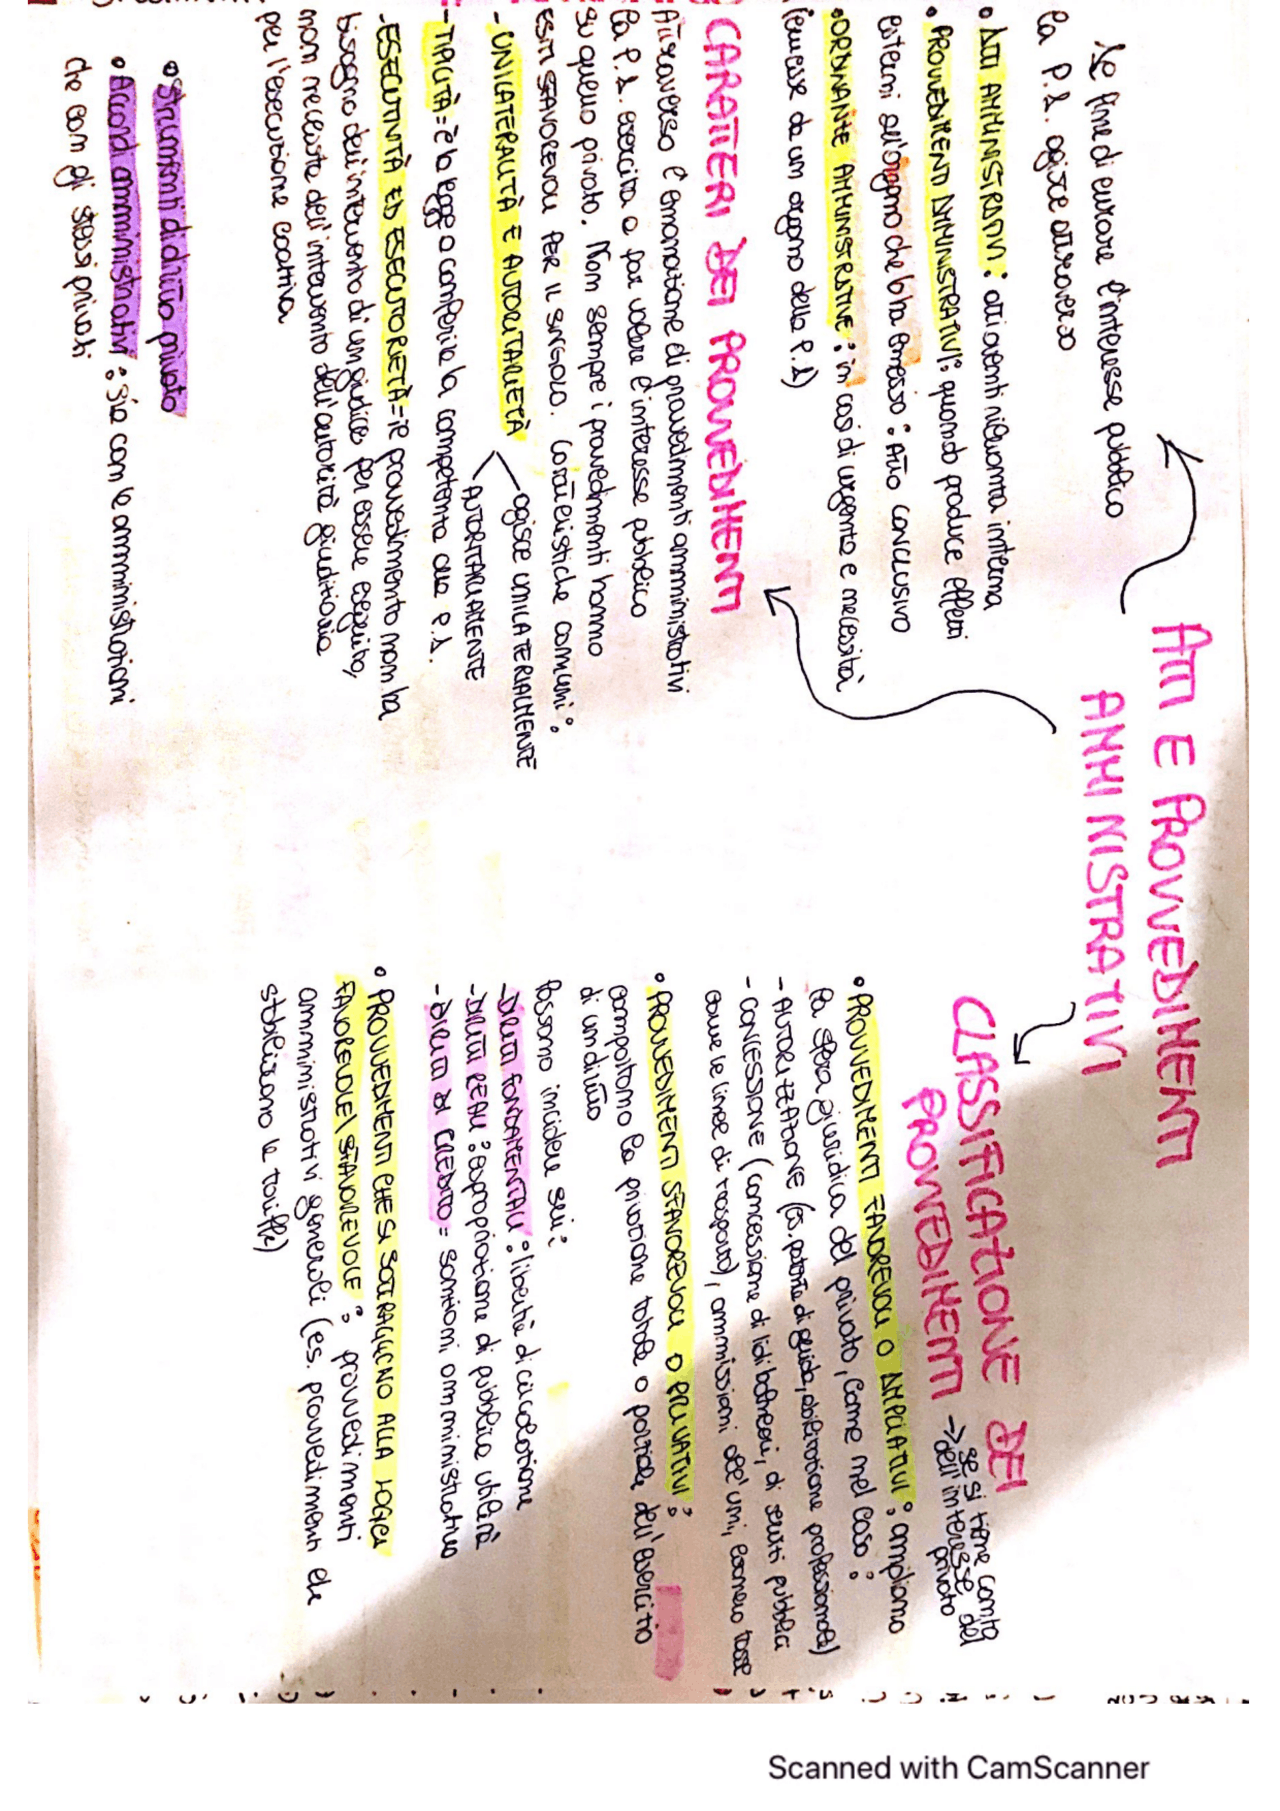 ATTI E PROVVEDIMENTI
AMMINISTRATIVI
Al fine di curare l'interesse pubblico
la P.A. agisce attraverso
• ATTI AMMINISTRATIVI: atti aventi rilevanza interna
• PROVVEDIMENTI AMMINISTRATIVI: quando produce effetti
esterni all'organo che l'ha emesso: ATTO CONCLUSIVO
• ORDINANZE AMMINISTRATIVE: in casi di urgenza e necessità
(emesse da un organo della P.A)
CARATTERI DEI PROVVEDIMENTI
Attraverso l'emanazione di provvedimenti amministrativi
la P.A. esercita o far valere l'interesse pubblico
su quello privato. Non sempre i provvedimenti hanno
ESITI SFAVOREVOLI PER IL SINGOLO. Caratteristiche comuni:
- UNILATERALITÀ E AUTORITARIETÀ
agisce UNILATERIALMENTE
AUTORITARIAMENTE
- TIPICITÀ = è la legge a conferire la competenza alla P.A.
- ESECUTIVITÀ ED ESECUTORIETÀ = il provvedimento non ha
bisogno dell'intervento di un giudice per essere eseguito,
non necessita dell'intervento dell'autorità giudiziaria
per l'esecuzione coattiva
• Strumenti di diritto privato
• Accordi amministrativi: sia con le amministrazioni
che con gli stessi privati
CLASSIFICAZIONE DEI
PROVVEDIMENTI
→ se si tiene conto
dell'interesse del
privato
• PROVVEDIMENTI FAVOREVOLI O AMPLIATIVI: ampliano
la sfera giuridica del privato, come nel caso:
- AUTORIZZAZIONE (es. patente di guida, abilitazione professionale)
- CONCESSIONE (concessione di lidi balneari, di servizi pubblici
come le linee di trasporto), ammissioni all'uni, esonero tasse
• PROVVEDIMENTI SFAVOREVOLI O PRIVATIVI:
comportano la privazione totale o parziale dell'esercizio
di un diritto
Possono incidere sui:
- DIRITTI FONDAMENTALI: libertà di circolazione
- DIRITTI REALI: espropriazione di pubblica utilità
- DIRITTI DI CREDITO = sanzioni amministrative
• PROVVEDIMENTI CHE SI SOTTRAGGONO ALLA LOGICA
FAVOREVOLE \ SFAVOREVOLE: provvedimenti
amministrativi generali (es. provvedimenti che
stabiliscono le tariffe)
Scanned with CamScanner